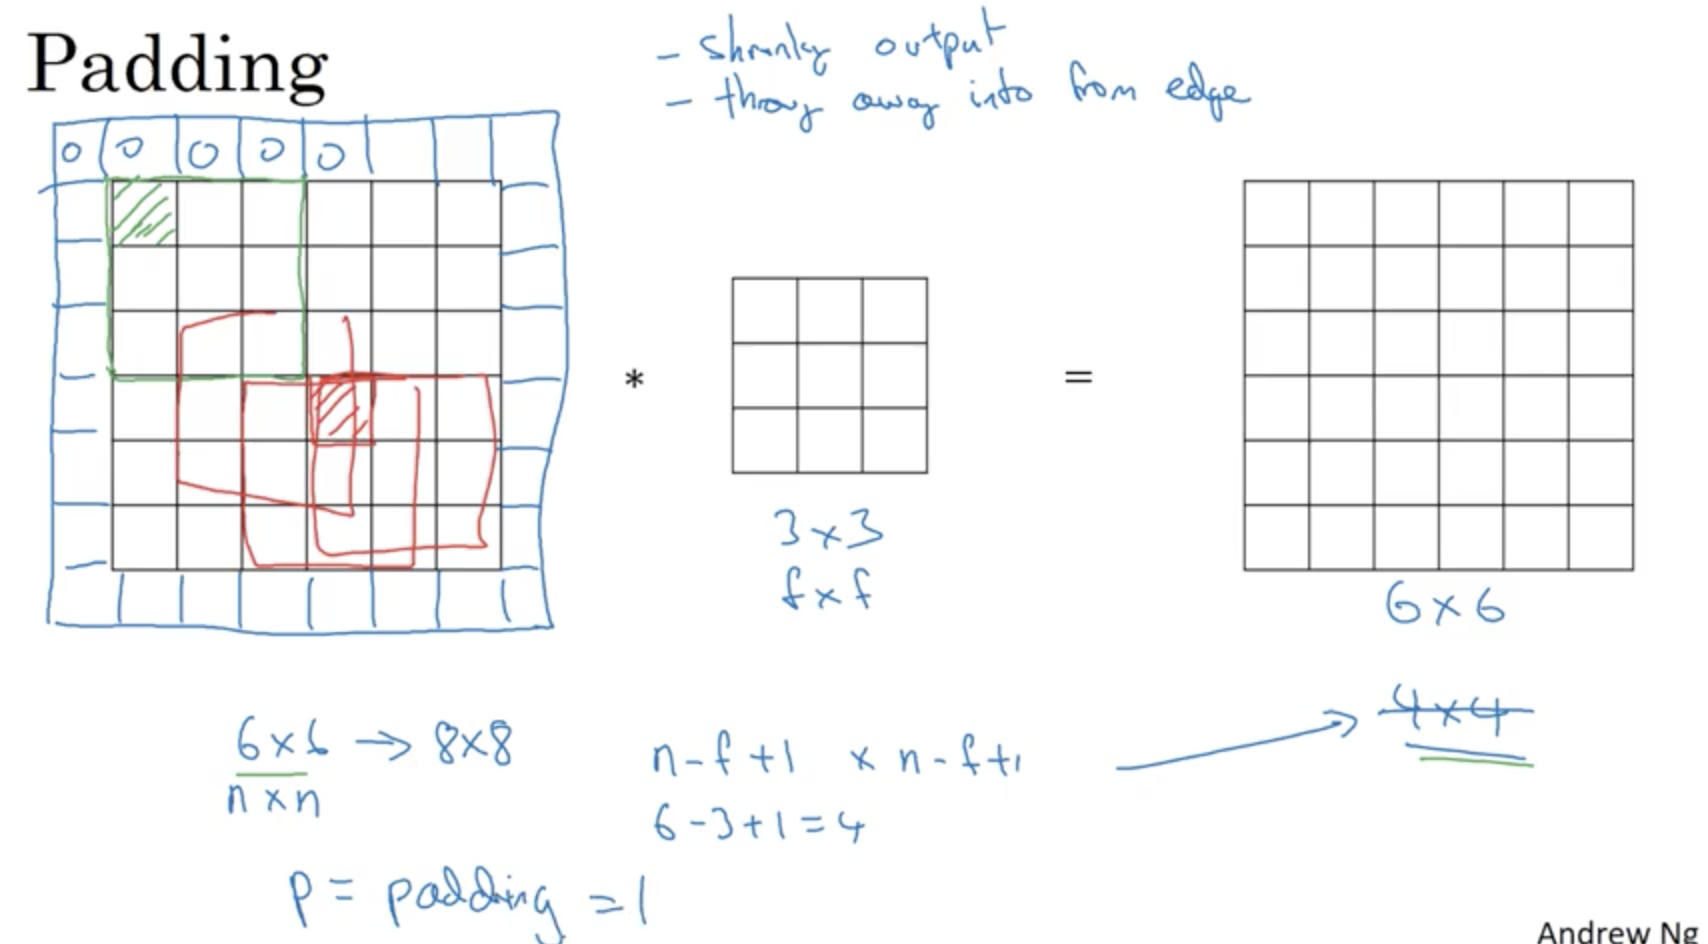 Padding
- shrinky output
- throw away info from edge
0 0 0 0 0
*
=
3x3
fxf
6x6
4x4
6x6 → 8x8
nxn
n-f+1 x n-f+1
6-3+1=4
p = padding = 1
Andrew Ng